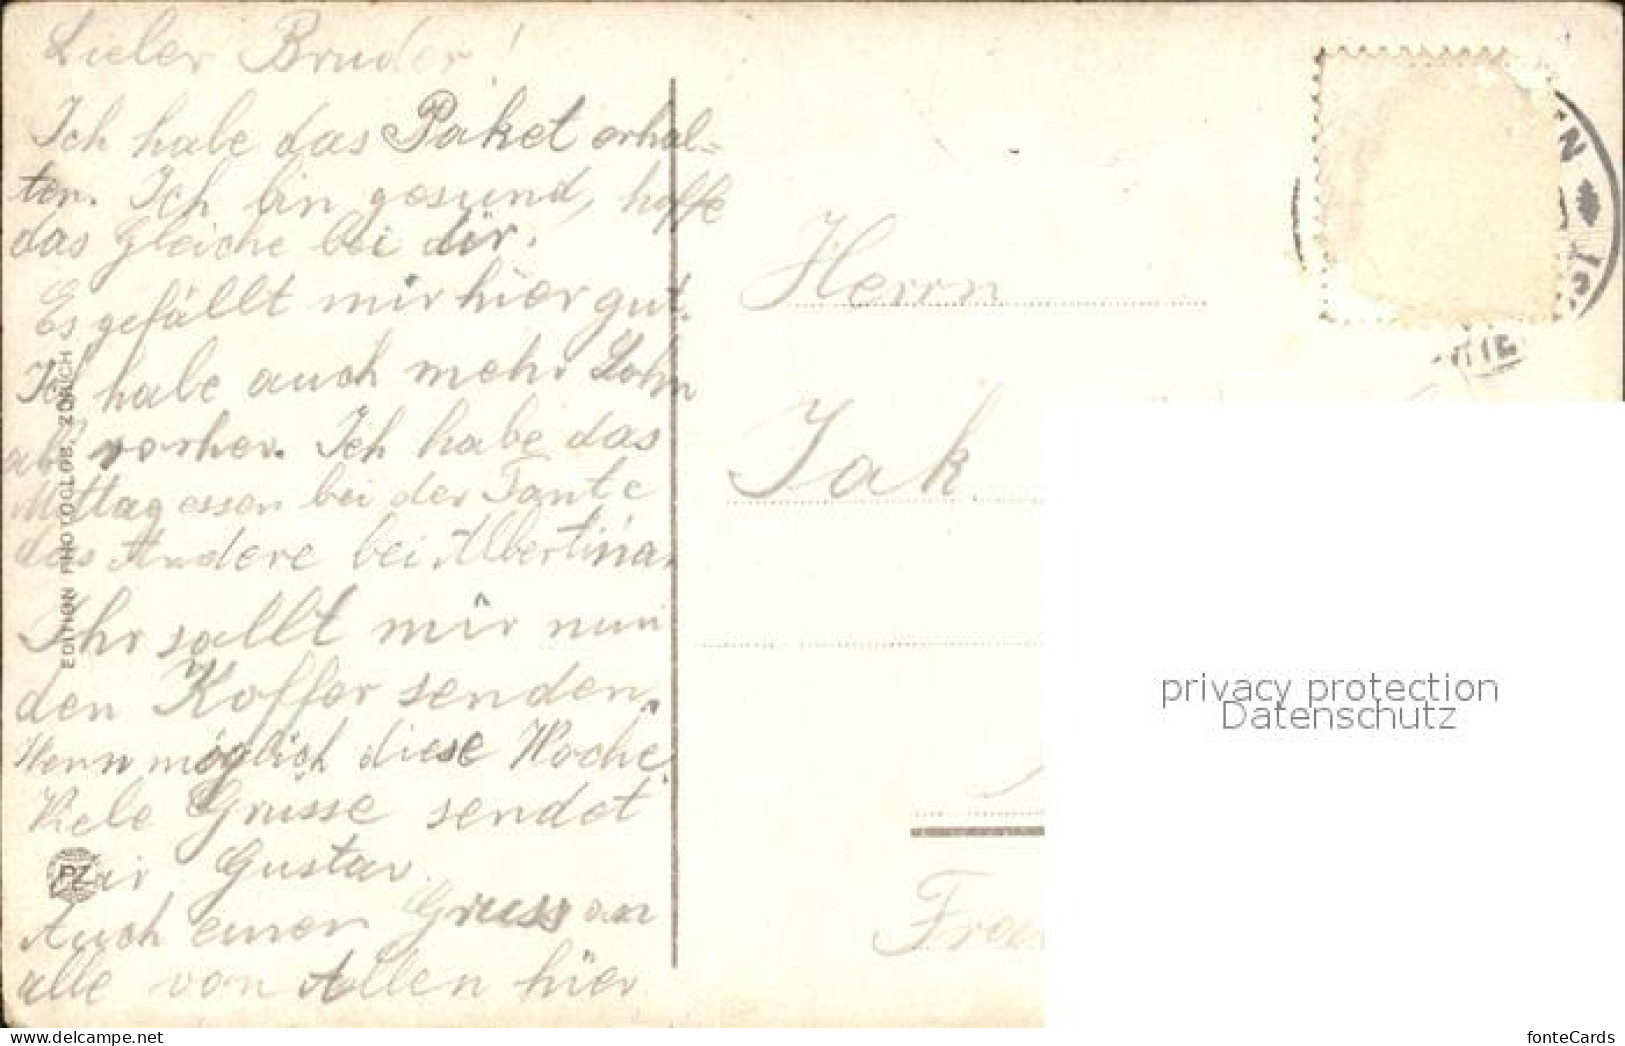 Lieber Bruder!
Ich habe das Paket erhal=
ten. Ich bin gesund, hoffe
das Gleiche bei dir.
Es gefällt mir hier gut.
Ich habe auch mehr Lohn
als vorher. Ich habe das
Mittagessen bei der Tante
das Andere bei Albertina.
Ihr sollt mir nun
den Koffer senden.
Wenn möglich diese Woche.
Viele Grüsse sendet
Dir Gustav.
Auch einen Gruss an
alle von Allen hier
EDITION PHOTOGLOB, ZÜRICH
PZ
Herrn
Jak
privacy protection
Datenschutz
www.delcampe.net
fonteCards